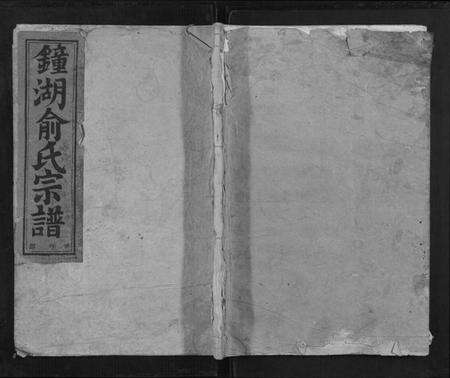 鐘湖俞氏宗譜